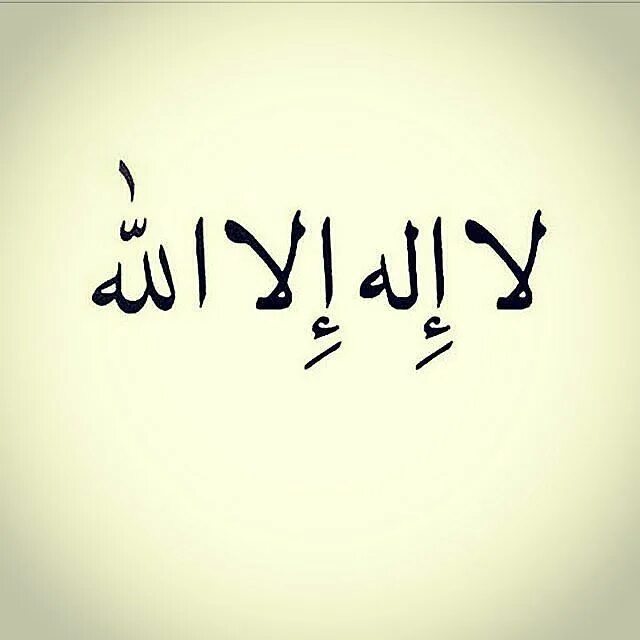 لا إِله إِلا اللّٰه